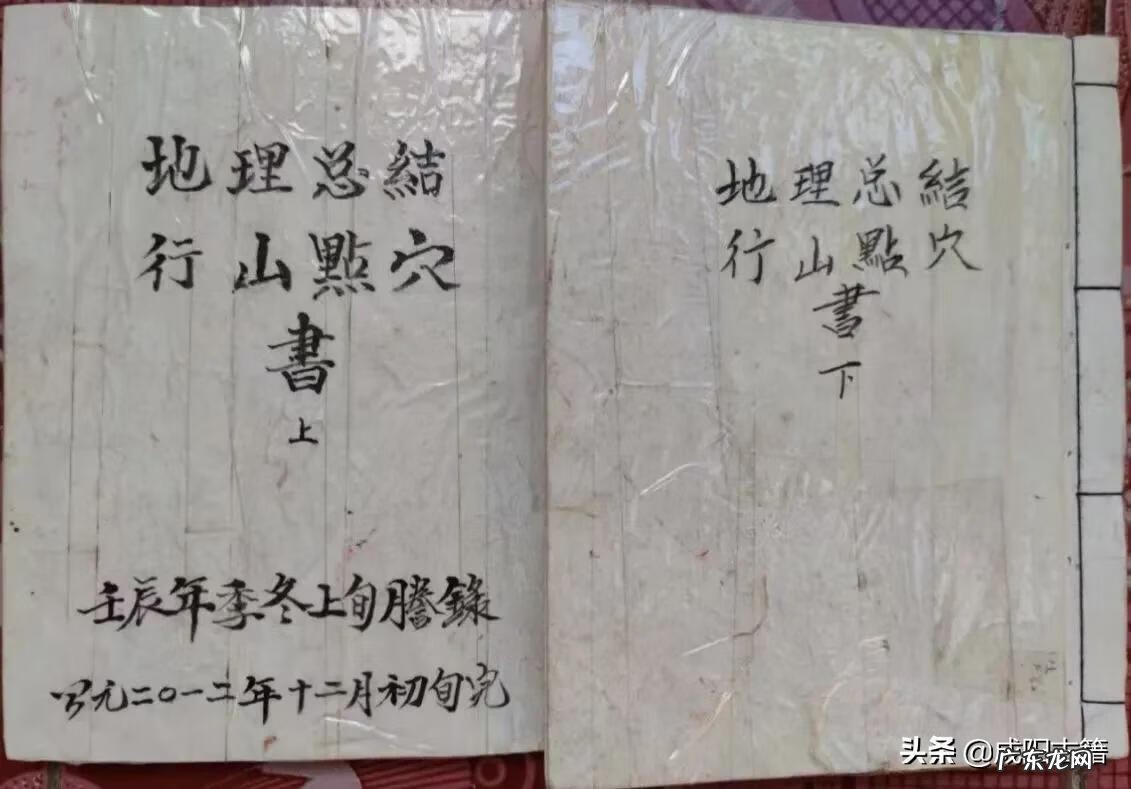 地理总結
行山點穴
書
上
壬辰年季冬上旬謄錄
公元二〇一二年十二月初旬完
地理总結
行山點穴
書
下
头条 @咸阳古籍
广东龙网